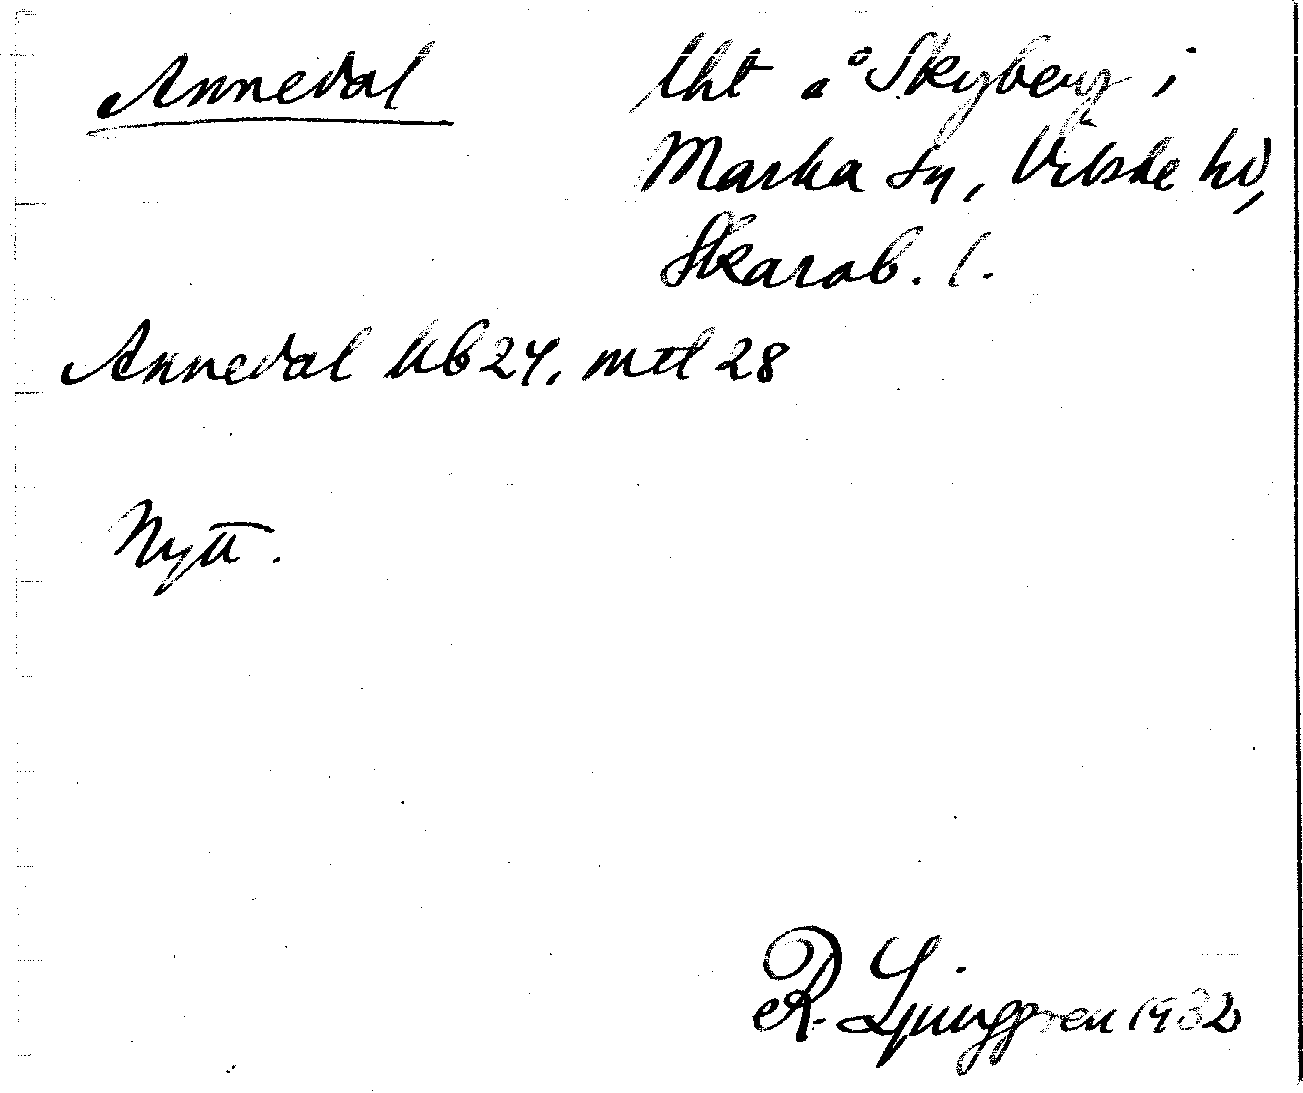 Annedal
lht å Skyberg i
Marka sn, Vilske hd,
Skarab. l.
Annedal hb 24, mtl 28
Nytt.
R. Ljunggren 1932